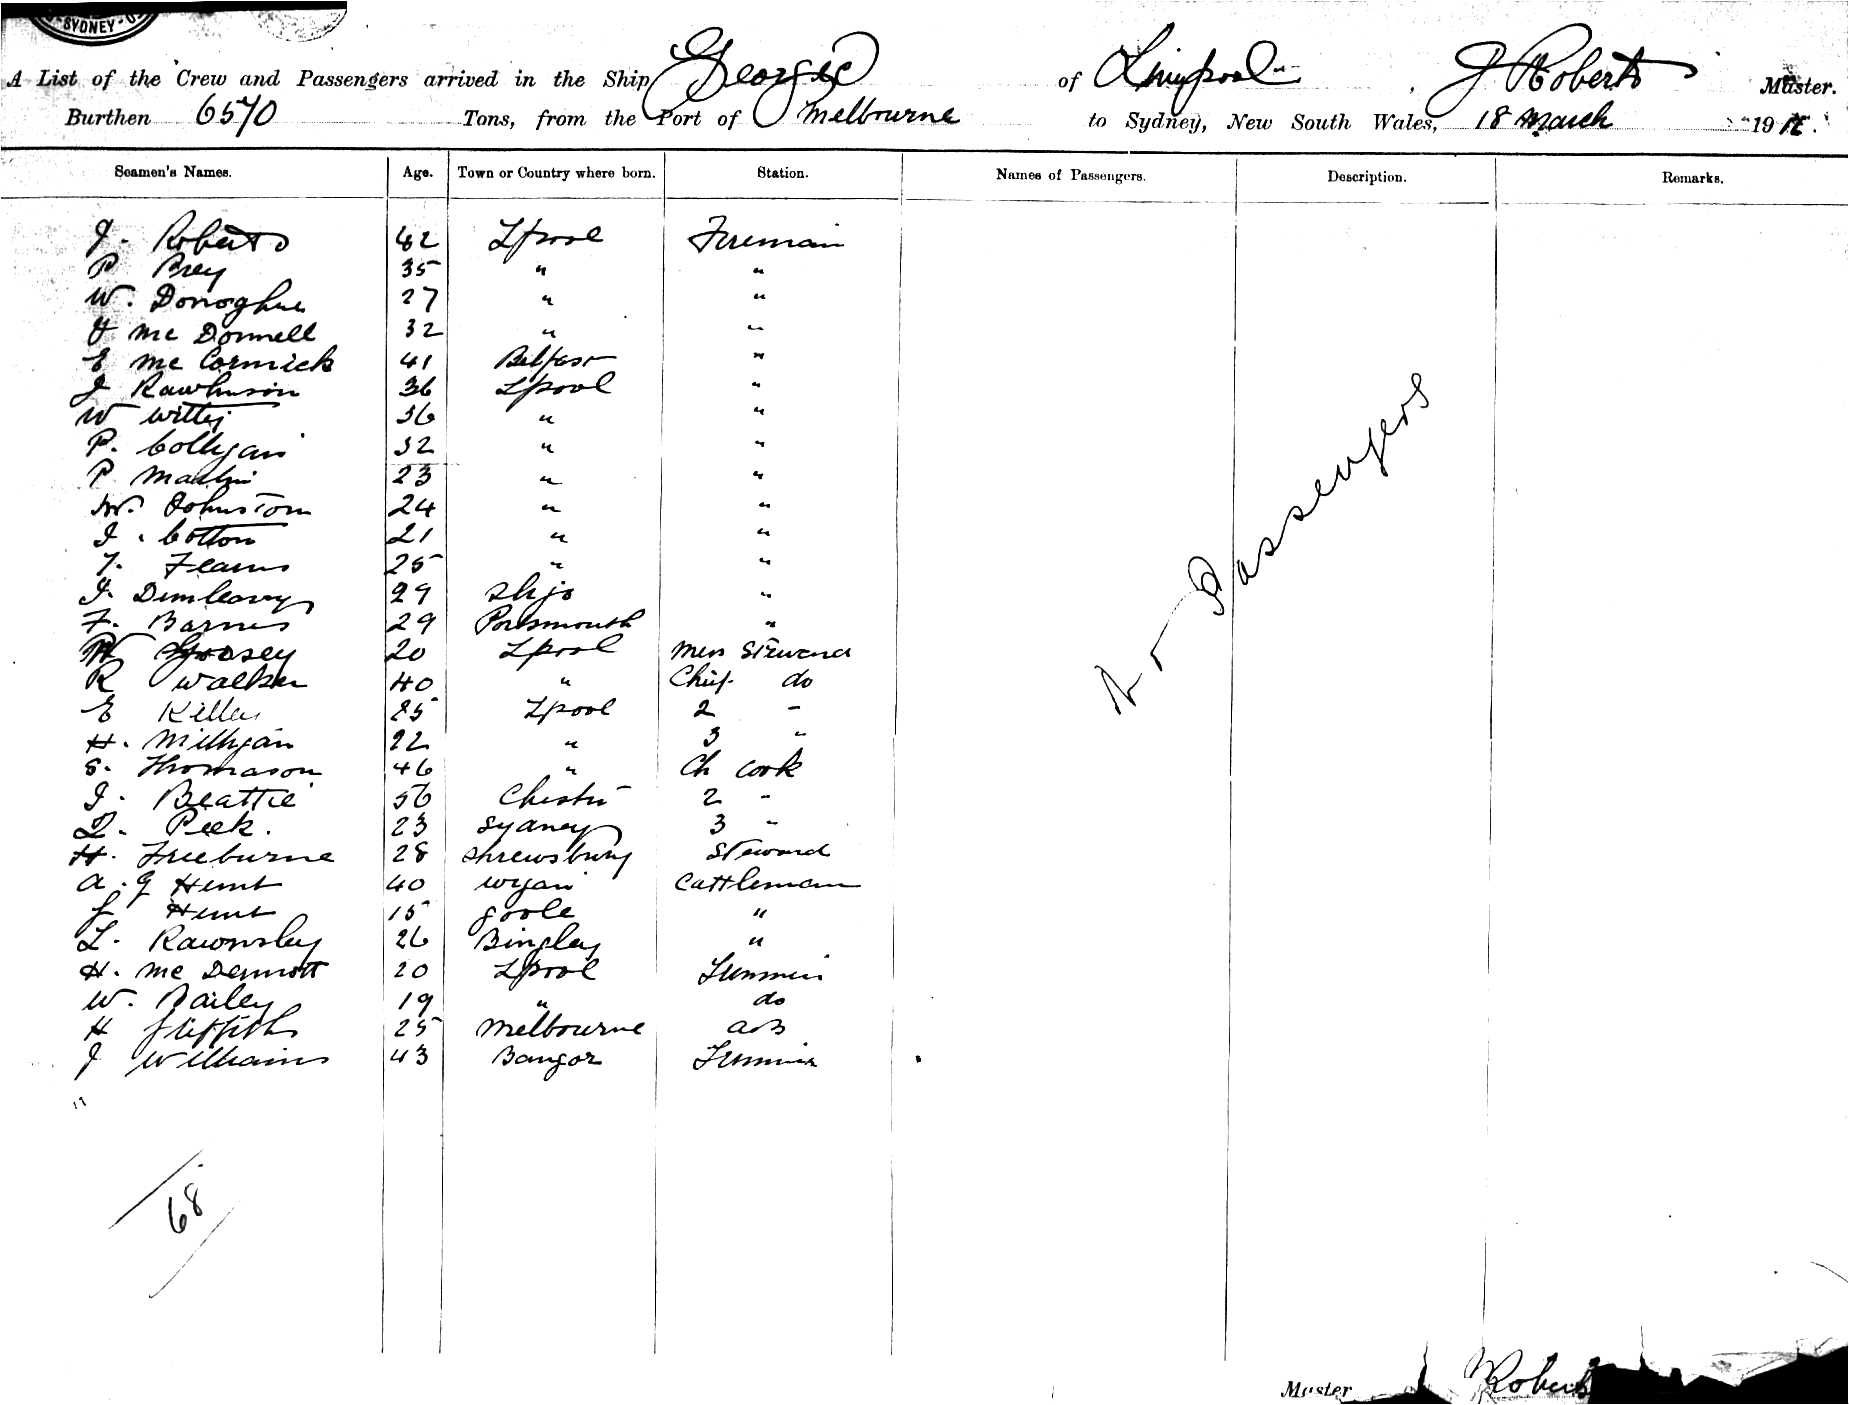 SYDNEY
A List of the Crew and Passengers arrived in the Ship Georgic of Liverpool J Roberts Master.
Burthen 6570 Tons, from the Port of Melbourne to Sydney, New South Wales, 18 March 191
Seamen's Names. Age. Town or Country where born. Station. Names of Passengers. Description. Remarks.
J. Roberts 42 Lpool Fireman
P Brey 35 " "
W. Donoghue 27 " "
Mc Donnell 32 " "
E Mc Cormick 41 Belfast "
J Rawlinson 36 Lpool "
W Witty 36 " "
P. Colligan 32 " "
P Martin 23 " "
W. Johnston 24 " "
J. Cotton 21 " "
F. Fearns 25 " "
J. Dunleavy 29 Sligo "
F. Barnes 29 Portsmouth "
20 Lpool Mess Steward
R Walker 40 " Chief do
E Killey 25 Lpool 2 "
H. Milligan 22 " 3 "
S. Thomason 46 " Ch Cook
J. Beattie 56 Chester 2 "
Peek. 23 Sydney 3 "
H. Freeburne 28 Shrewsbury Steward
A. G Hunt 40 Wigan Cattleman
J Hunt 15 Goole "
L. Rawnsley 26 Bingley "
H. Mc Dermott 20 Lpool Trimmer
W. Bailey 19 " do
H Griffiths 25 Melbourne AB
J Williams 43 Bangor Trimmer
No Passengers
68
Master J Roberts